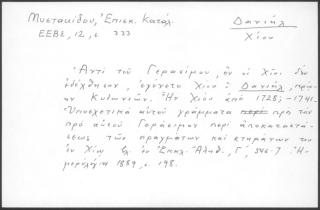 Μυστακίδου, Ἐπισκ. Κατάλ.
ΕΕΒΣ, 12, σ. 222
Δανιήλ
Χίου
Ἀντὶ τοῦ Γερασίμου, ὃν οἱ Χῖοι δὲν
ἐδέχθησαν, ἐγένετο Χίου ὁ Δανιήλ, πρώ-
ην Κυδωνιῶν. Ἦν Χίου ἀπὸ 1728; -1741.
Ὑποσχετικὰ αὐτοῦ γράμματα πρὸς τὸν
πρὸ αὐτοῦ Γεράσιμον περὶ ἀποκαταστά-
σεως τῶν πραγμάτων καὶ κτημάτων του
ἐν Χίῳ βλ. ἐν Ἐκκλ. Ἀληθ., Γ΄, 546-7. Ἡ-
μερολόγιον 1889, σ. 198.